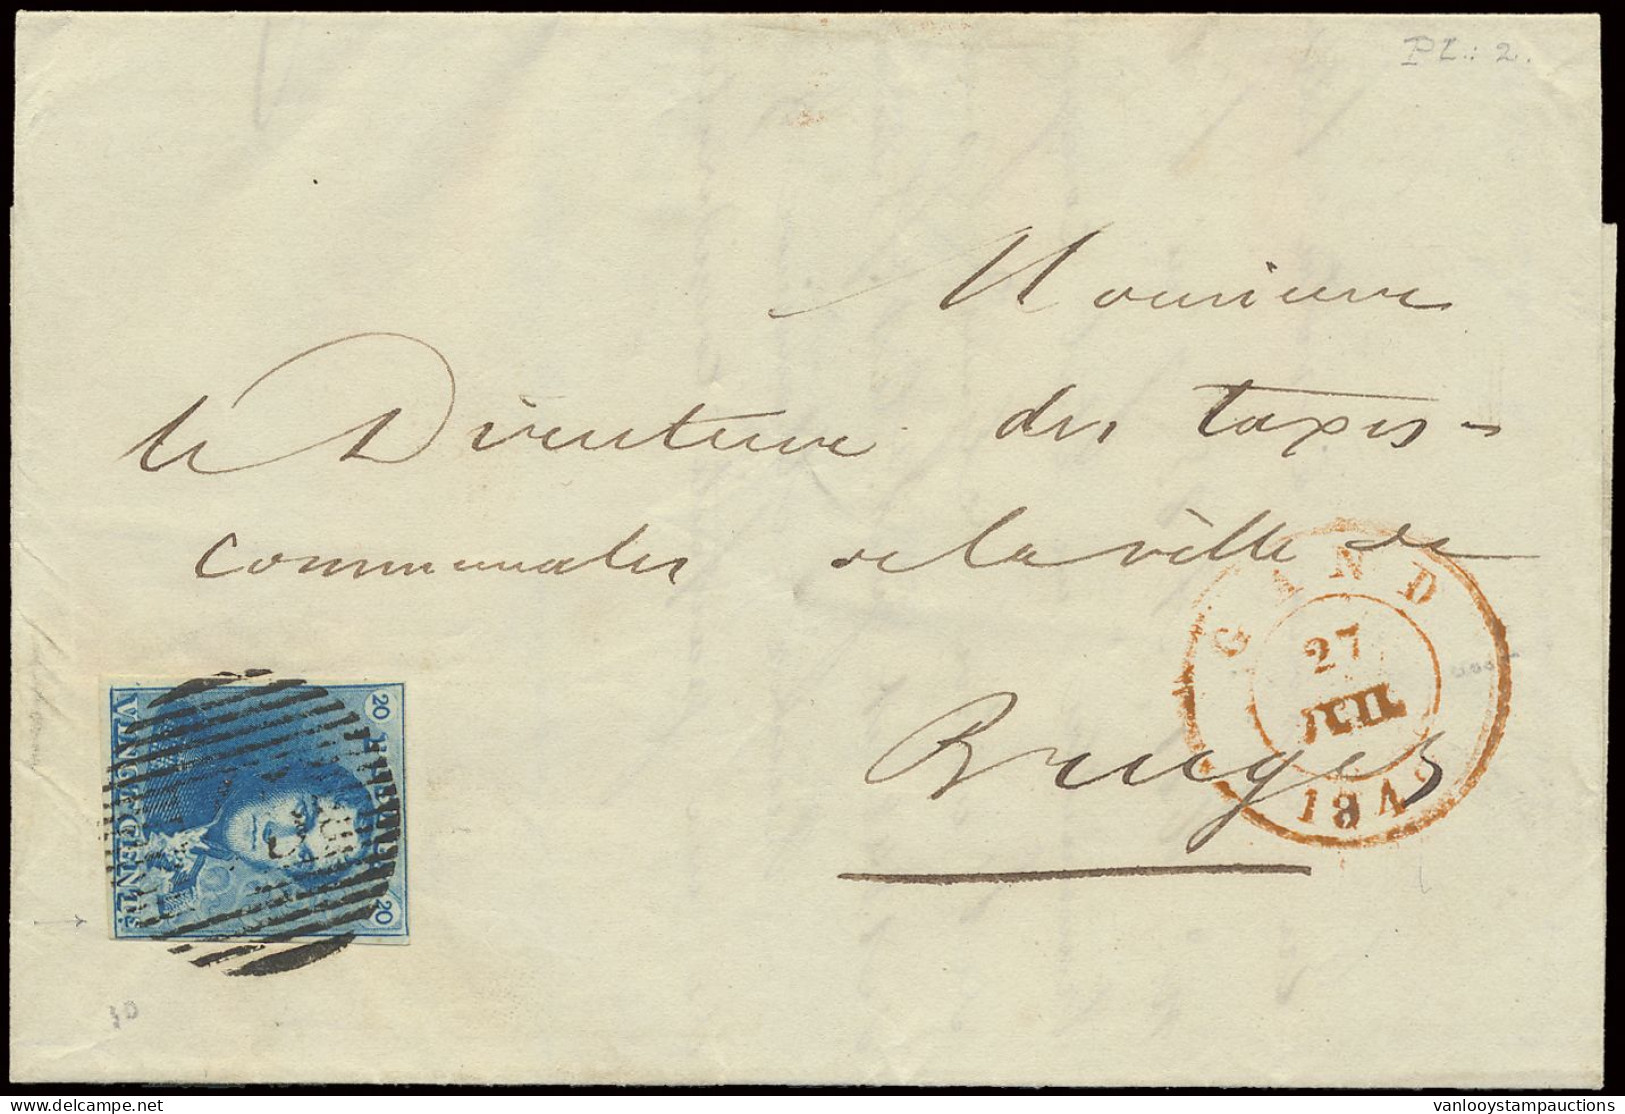 PL: 2.
Monsieur
le Directeur des taxes
communales de la ville de
Bruges
GAND
27
JUIL
184
20
POSTES
20
VINGT CENTS
30
delcampe.net
vanlooystampauctions